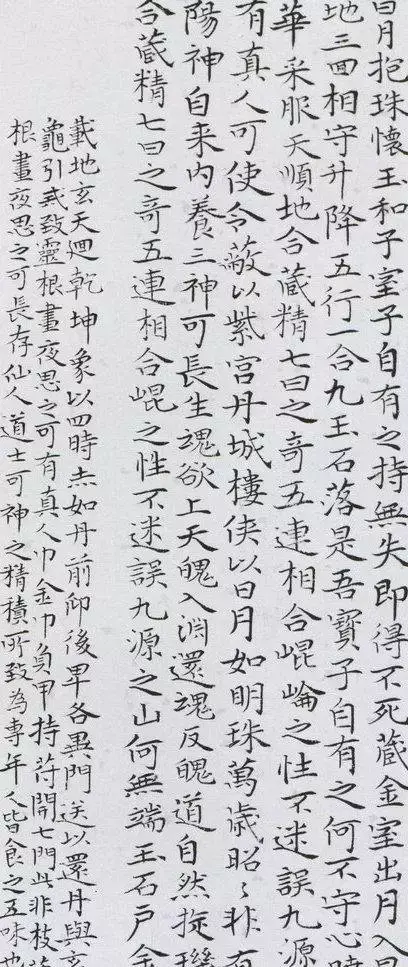 日月抱珠懷玉和子室子自有之持無失即得不死藏金室出月入日
地三回相守升降五行一合九玉石落是吾寶子自有之何不守心曉
華采服天順地合藏精七曰之奇五連相合崐崘之性不迷誤九源
有真人可使令蔽以紫宫丹城樓俠以日月如明珠萬歲昭〻非有
陽神自来内養三神可長生魂欲上天魄入淵還魂反魄道自然旋璣
合藏精七曰之奇五連相合崐之性不迷誤九源之山何無端玉石户金
載地玄天迴乾坤象以四時赤如丹前仰後卑各異門送以還丹與玄
龜引炁致靈根晝夜思之可有真人巾金巾負甲持苻開七門此非枝葉
根晝夜思之可長存仙人道士可神之精積所致為專年人皆食之五味也